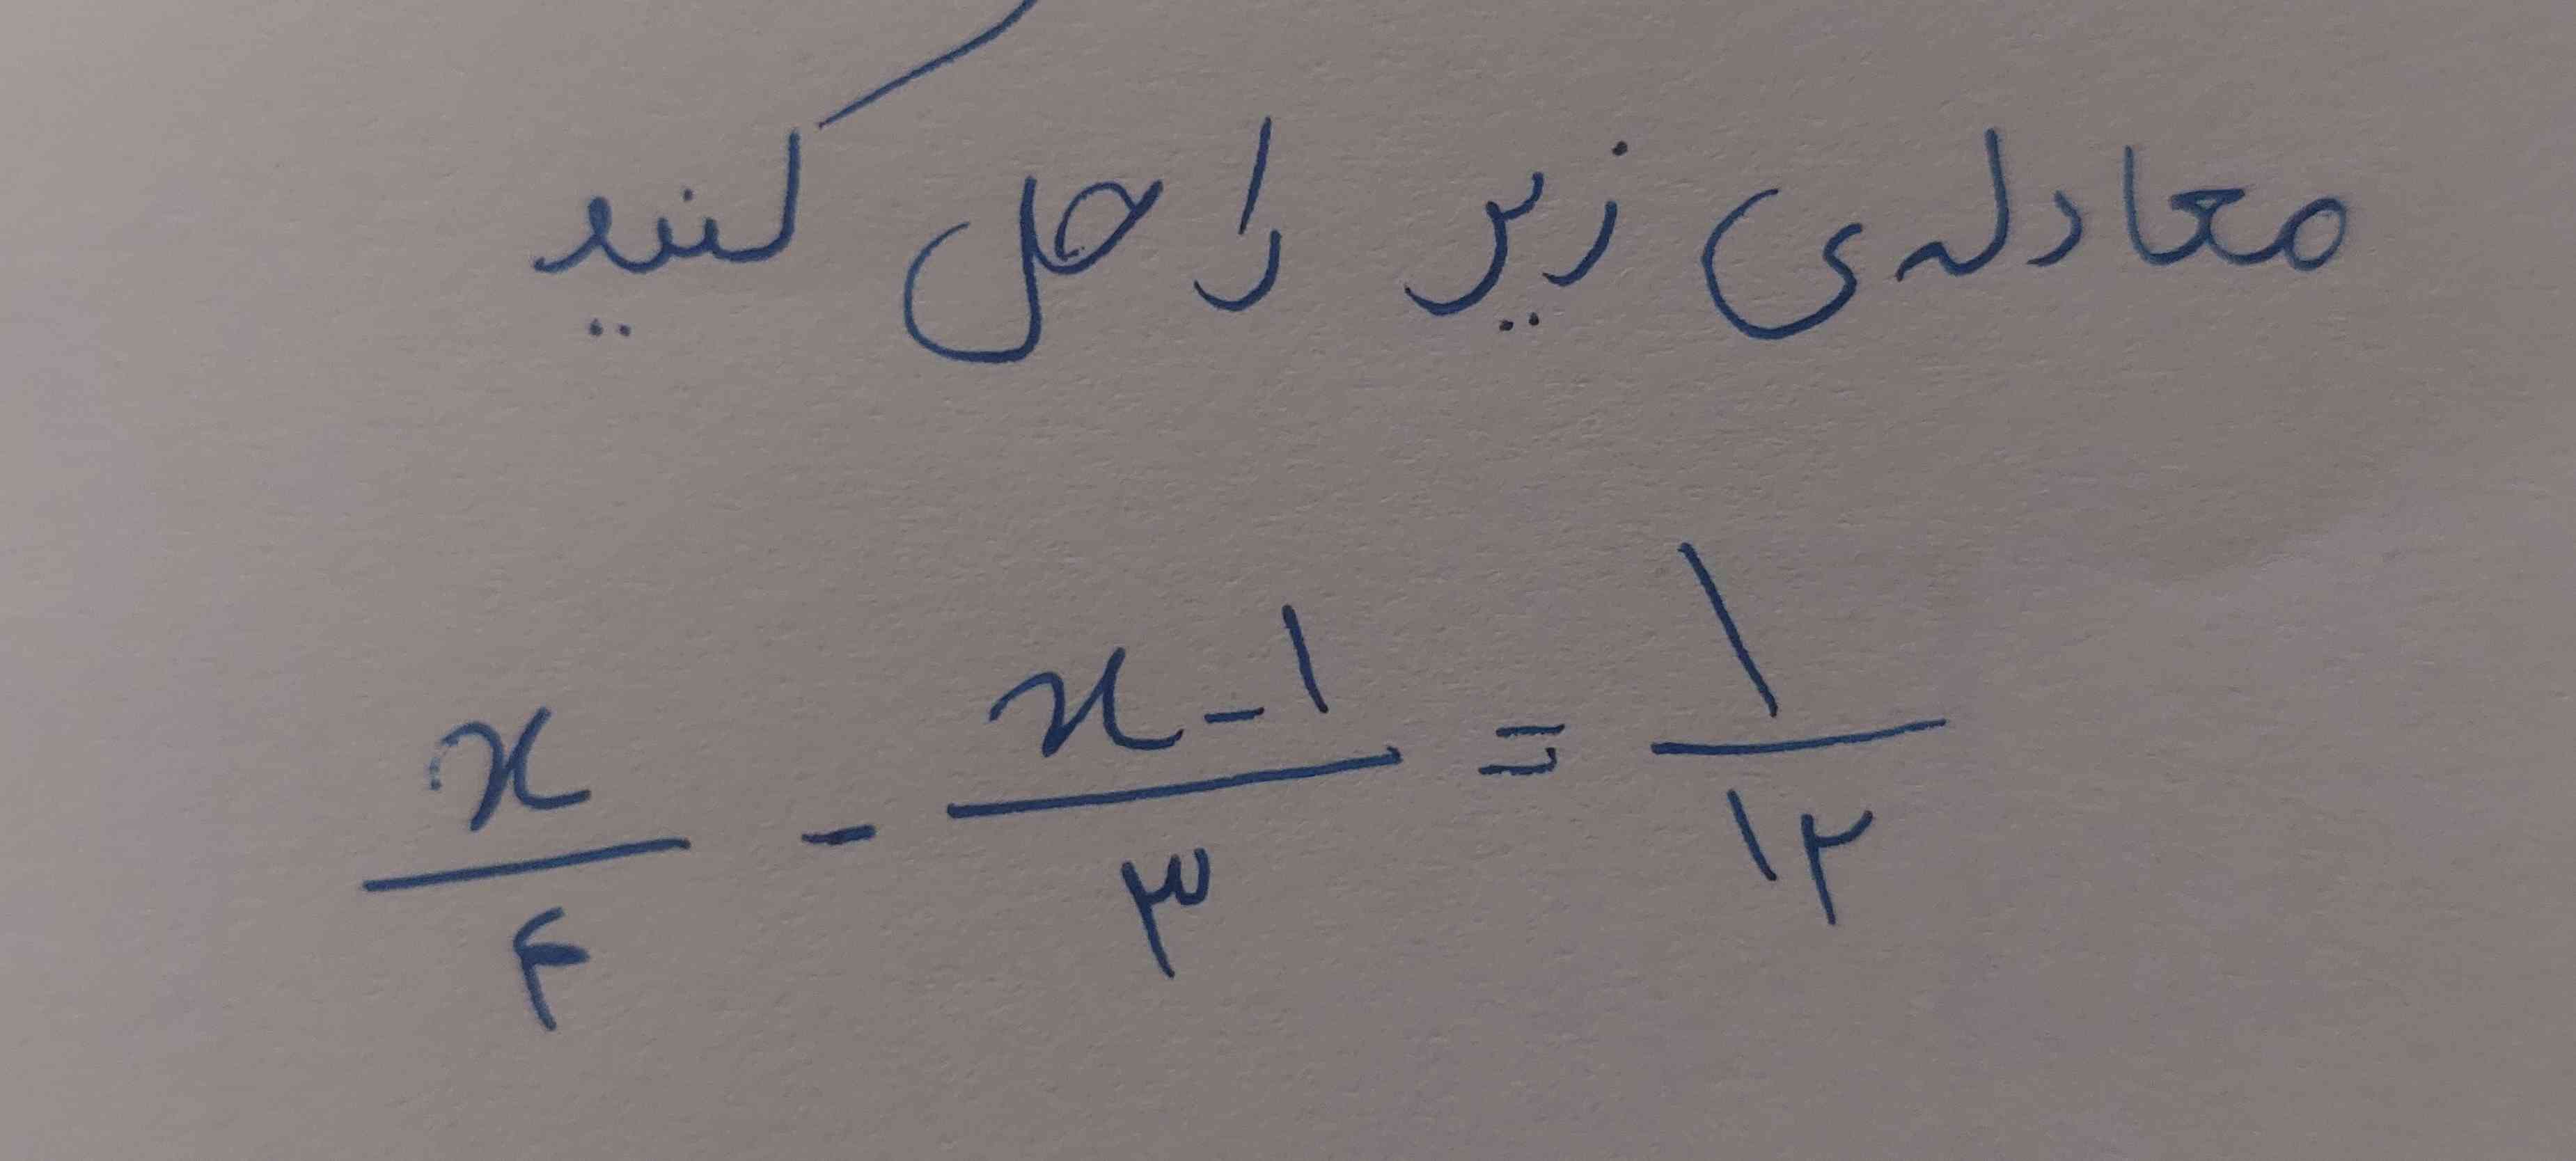 معادله‌ی زیر را حل کنید
x/۴ - (x-۱)/۳ = ۱/۱۲